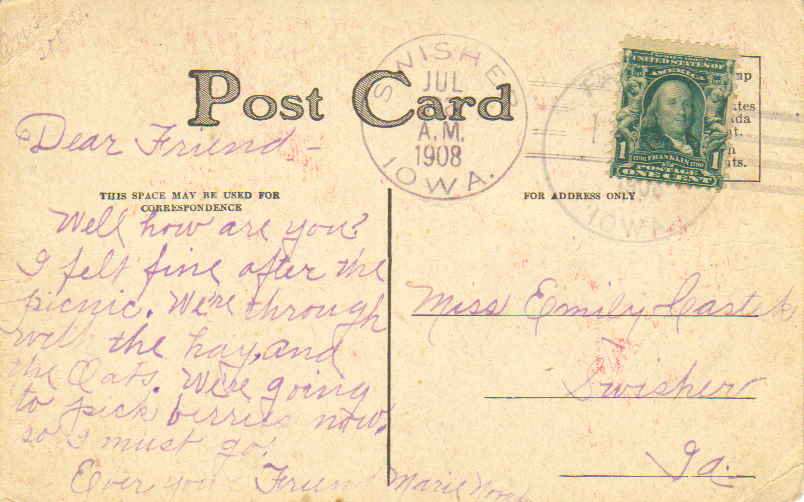 Post Card
SWISHER
JUL
A.M.
1908
IOWA.
UNITED STATES OF
AMERICA
1 FRANKLIN 1
POSTAGE
ONE CENT
IOWA
Dear Friend -
THIS SPACE MAY BE USED FOR
CORRESPONDENCE
FOR ADDRESS ONLY
Well how are you?
I felt fine after the
picnic. We're through
with the hay, and
the Oats. We're going
to pick berries now,
so I must go.
Ever your Friend Marie
Miss Emily
Swisher
Ia.